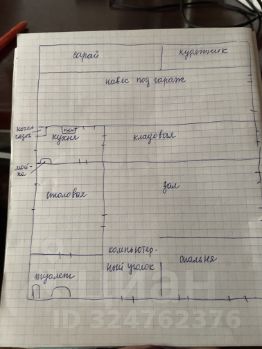 сарай
курятник
навес под гараж
котел
газов
кухня
кладовая
мой-
ка
столовая
зал
компьютер-
ный уголок
спальня
туалет
циан
ID 324762376